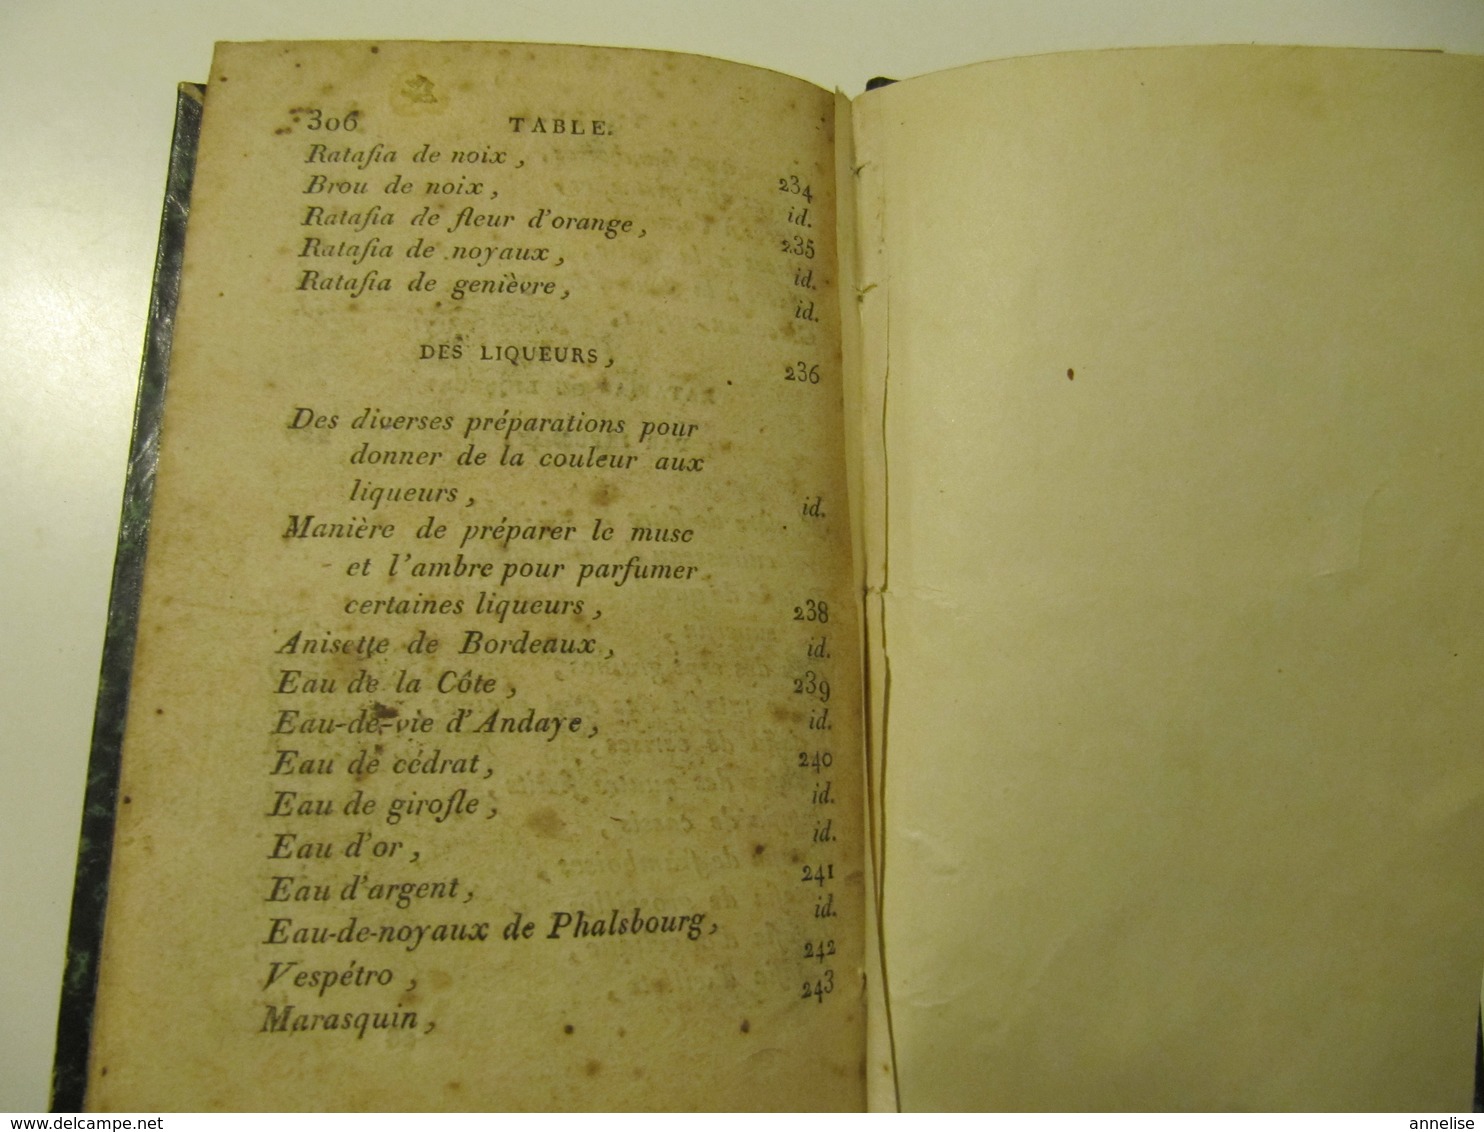 306 TABLE.
Ratafia de noix, 234
Brou de noix, id.
Ratafia de fleur d'orange, 235
Ratafia de noyaux, id.
Ratafia de genièvre, id.
DES LIQUEURS, 236
Des diverses préparations pour
donner de la couleur aux
liqueurs, id.
Manière de préparer le musc
et l'ambre pour parfumer
certaines liqueurs, 238
Anisette de Bordeaux, id.
Eau de la Côte, 239
Eau-de-vie d'Andaye, id.
Eau de cédrat, 240
Eau de girofle, id.
Eau d'or, id.
Eau d'argent, 241
Eau-de-noyaux de Phalsbourg, id.
Vespétro, 242
Marasquin, 243
www.delcampe.net
annelise